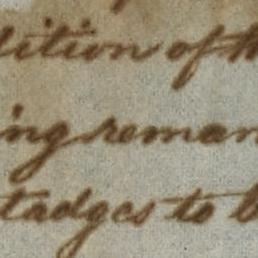 dition of th
ing reman
tadges to b